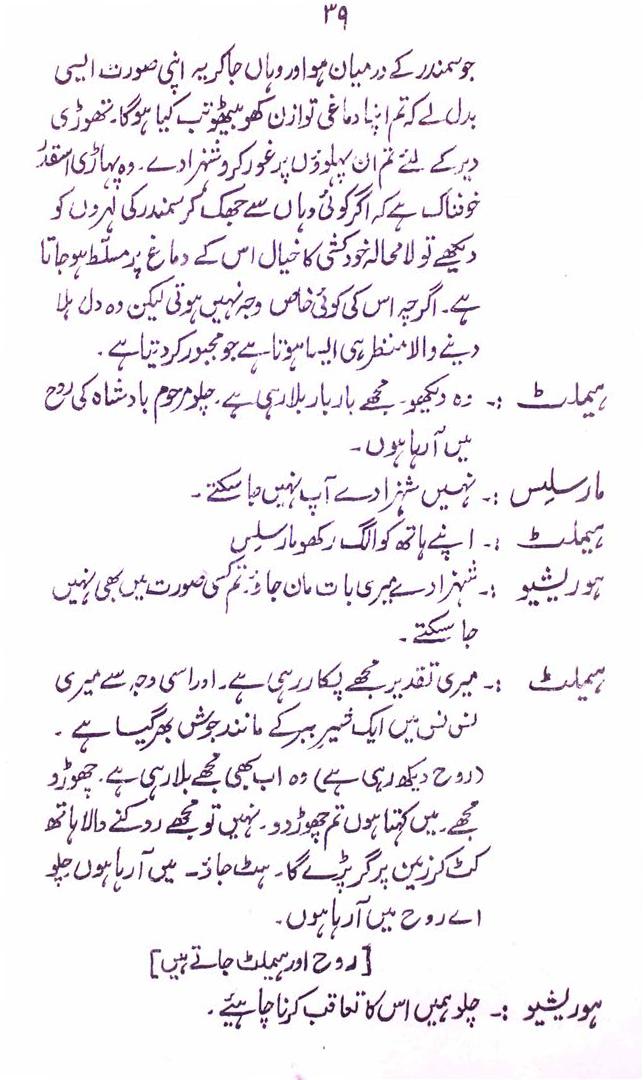 ۳۹
جو سمندر کے درمیان ہو اور وہاں جا کر یہ اپنی صورت ایسی
بدل لے کہ تم اپنا دماغی توازن کھو بیٹھو تب کیا ہوگا۔ تھوڑی
دیر کے لئے تم ان پہلوؤں پر غور کرو شہزادے۔ وہ پہاڑی اسقدر
خوفناک ہے کہ اگر کوئی وہاں سے جھک کر سمندر کی لہروں کو
دیکھے تو لا محالہ خودکشی کا خیال اس کے دماغ پر مسلّط ہو جاتا
ہے۔ اگرچہ اس کی کوئی خاص وجہ نہیں ہوتی لیکن وہ دل ہلا
دینے والا منظر ہی ایسا ہوتا ہے جو مجبور کر دیتا ہے۔
ہیملٹ :۔ وہ دیکھو۔ مجھے بار بار بلا رہی ہے۔ چلو مرحوم بادشاہ کی روح
میں آ رہا ہوں۔
مارسلیس :۔ نہیں شہزادے آپ نہیں جا سکتے۔
ہیملٹ :۔ اپنے ہاتھ کو الگ رکھو مارسلیس
ہوریشیو :۔ شہزادے میری بات مان جاؤ۔ تم کسی صورت میں بھی نہیں
جا سکتے۔
ہیملٹ :۔ میری تقدیر مجھے پکار رہی ہے۔ اور اسی وجہ سے میری
نس نس میں ایک شیر ببر کے مانند جوش بھر گیا ہے۔
(روح دیکھ رہی ہے) وہ اب بھی مجھے بلا رہی ہے۔ چھوڑ دو
مجھے۔ میں کہتا ہوں تم چھوڑ دو۔ نہیں تو مجھے روکنے والا ہاتھ
کٹ کر زمین پر گر پڑے گا۔ ہٹ جاؤ۔ میں آ رہا ہوں چلو
اے روح میں آ رہا ہوں۔
[روح اور ہیملٹ جاتے ہیں]
ہوریشیو :۔ چلو ہمیں اس کا تعاقب کرنا چاہیئے۔